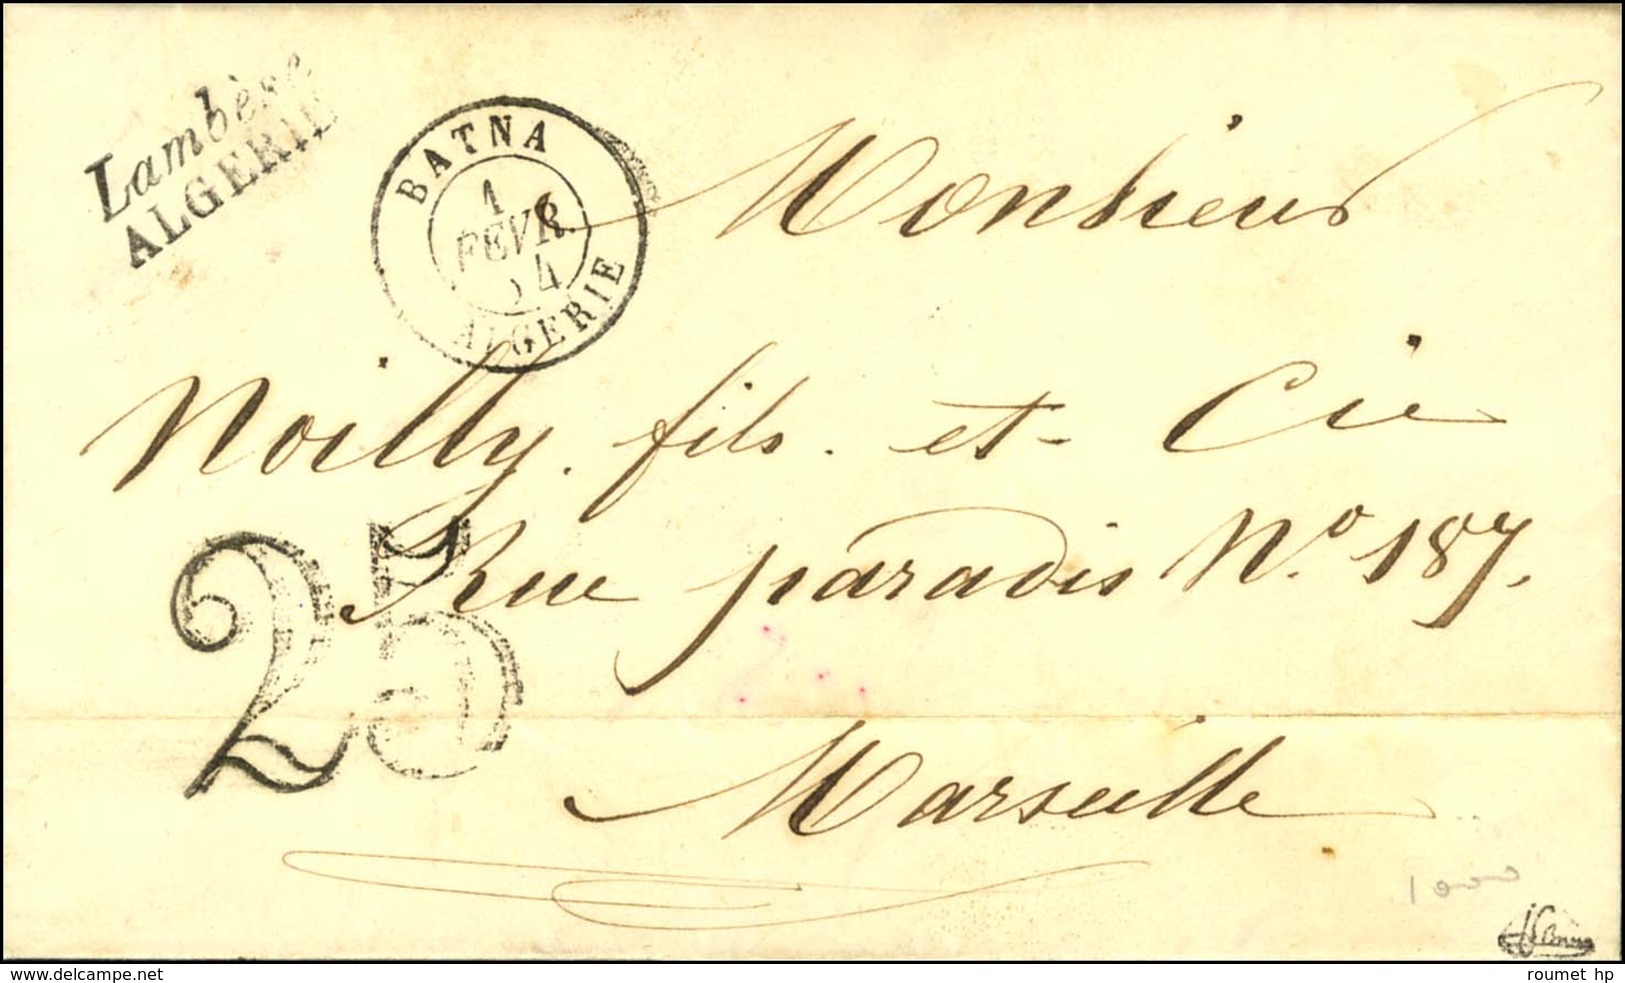 Lambèse
ALGERIE
BATNA
1
FEVR.
54
ALGERIE
Monsieur
Noilly. fils. et Cie
25
Rue paradis N.º 187.
Marseille
1000
www.delcampe.net
roumet hp